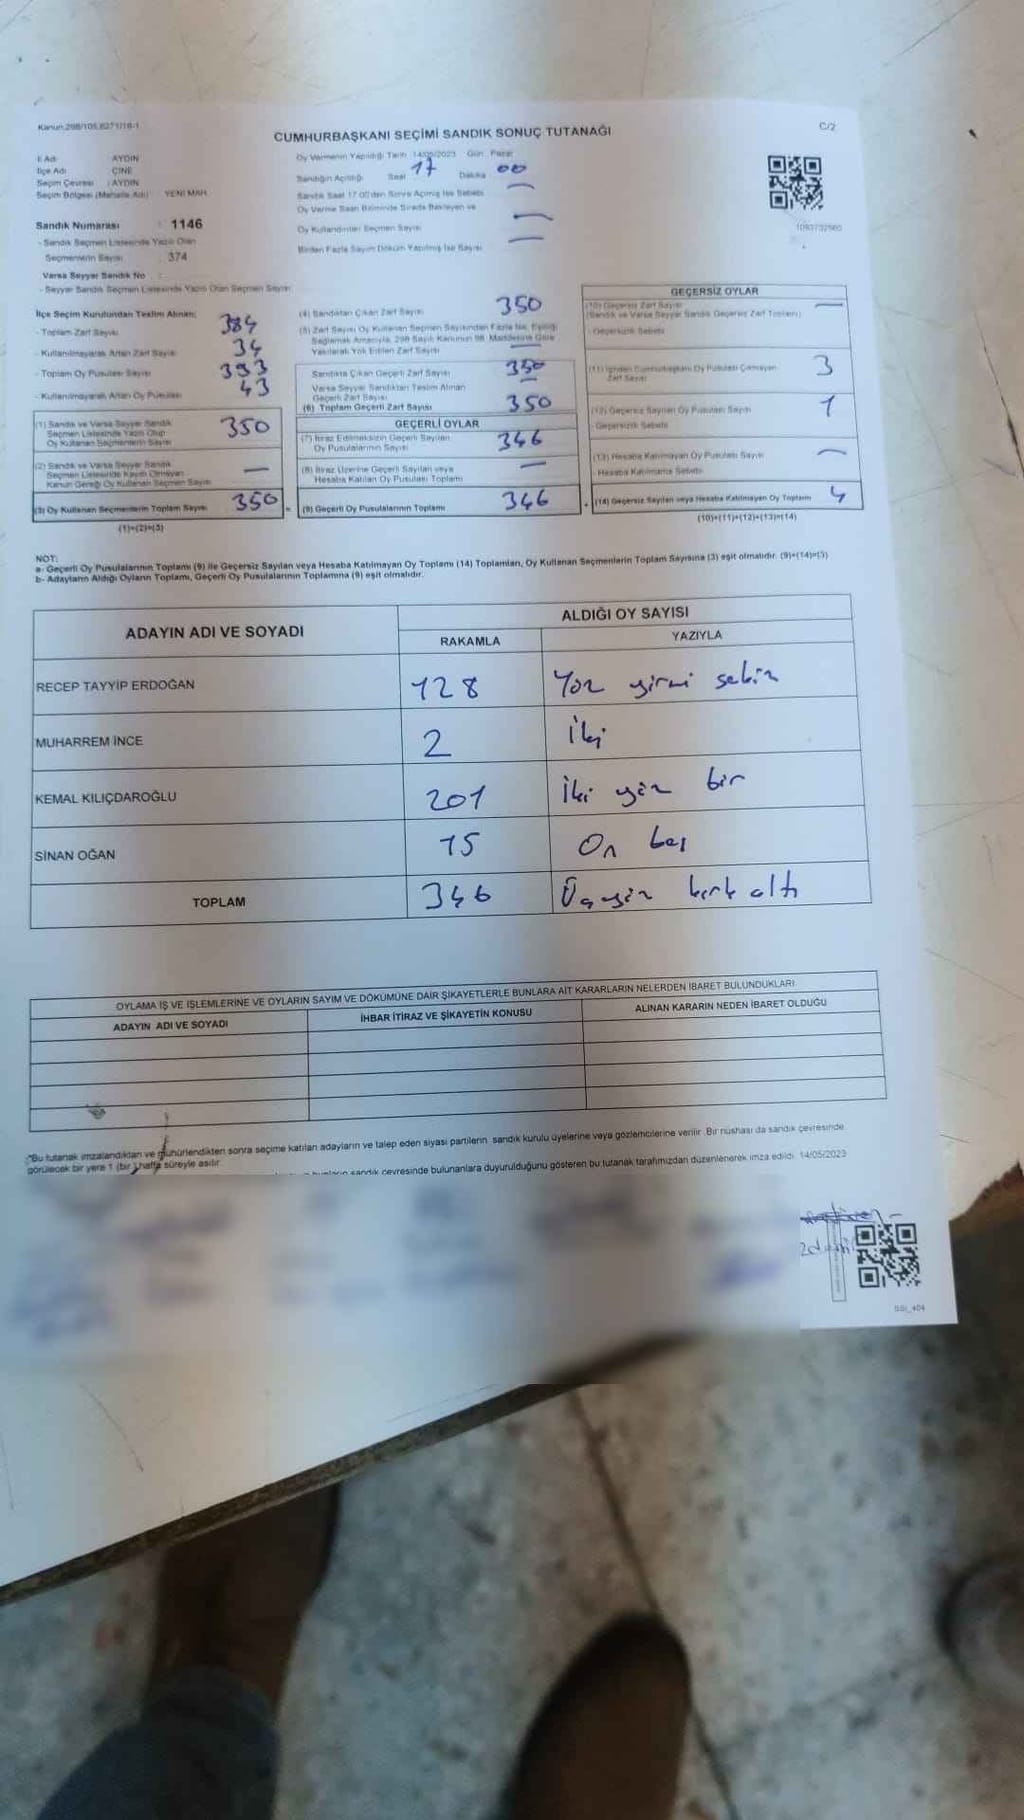 Kanun:298/105,6271/18-1
CUMHURBAŞKANI SEÇİMİ SANDIK SONUÇ TUTANAĞI
C/2
İl Adı AYDIN
İlçe Adı ÇİNE
Seçim Çevresi : AYDIN
Seçim Bölgesi (Mahalle Adı) YENİ MAH.
Oy Vermenin Yapıldığı Tarih 14/05/2023 Gün Pazar
Sandığın Açıldığı Saat 17 Dakika 00
Sandık Saat 17.00'den Sonra Açılmış İse Sebebi
Oy Verme Saati Bitiminde Sırada Bekleyen ve
Oy Kullandırılan Seçmen Sayısı
Birden Fazla Sayım Döküm Yapılmış İse Sayısı
Sandık Numarası : 1146
- Sandık Seçmen Listesinde Yazılı Olan
Seçmenlerin Sayısı 374
Varsa Seyyar Sandık No :
- Seyyar Sandık Seçmen Listesinde Yazılı Olan Seçmen Sayısı
İlçe Seçim Kurulundan Teslim Alınan;
- Toplam Zarf Sayısı 384
- Kullanılmayarak Artan Zarf Sayısı 34
- Toplam Oy Pusulası Sayısı 393
- Kullanılmayarak Artan Oy Pusulası 43
(1) Sandık ve Varsa Seyyar Sandık
Seçmen Listesinde Yazılı Olup
Oy Kullanan Seçmenlerin Sayısı 350
(2) Sandık ve Varsa Seyyar Sandık
Seçmen Listesinde Kayıtlı Olmayan
Kanun Gereği Oy Kullanan Seçmen Sayısı —
(3) Oy Kullanan Seçmenlerin Toplam Sayısı 350
(1)+(2)=(3)
(4) Sandıktan Çıkan Zarf Sayısı 350
(5) Zarf Sayısı Oy Kullanan Seçmen Sayısından Fazla İse, Eşitliği
Sağlamak Amacıyla, 298 Sayılı Kanunun 98. Maddesine Göre
Yakılarak Yok Edilen Zarf Sayısı —
Sandıkta Çıkan Geçerli Zarf Sayısı 350
Varsa Seyyar Sandıktan Teslim Alınan
Geçerli Zarf Sayısı —
(6) Toplam Geçerli Zarf Sayısı 350
GEÇERLİ OYLAR
(7) İtiraz Edilmeksizin Geçerli Sayılan
Oy Pusulalarının Sayısı 346
(8) İtiraz Üzerine Geçerli Sayılan veya
Hesaba Katılan Oy Pusulası Toplamı —
(9) Geçerli Oy Pusulalarının Toplamı 346
GEÇERSİZ OYLAR
(10) Geçersiz Zarf Sayısı —
(Sandık ve Varsa Seyyar Sandık Geçersiz Zarf Toplamı)
- Geçersizlik Sebebi
(11) İçinden Cumhurbaşkanı Oy Pusulası Çıkmayan
Zarf Sayısı 3
(12) Geçersiz Sayılan Oy Pusulası Sayısı 1
- Geçersizlik Sebebi
(13) Hesaba Katılmayan Oy Pusulası Sayısı —
Hesaba Katılmama Sebebi
(14) Geçersiz Sayılan veya Hesaba Katılmayan Oy Toplamı 4
(10)+(11)+(12)+(13)=(14)
NOT:
a- Geçerli Oy Pusulalarının Toplamı (9) ile Geçersiz Sayılan veya Hesaba Katılmayan Oy Toplamı (14) Toplamları, Oy Kullanan Seçmenlerin Toplam Sayısına (3) eşit olmalıdır. (9)+(14)=(3)
b- Adayların Aldığı Oyların Toplamı, Geçerli Oy Pusulalarının Toplamına (9) eşit olmalıdır.
ADAYIN ADI VE SOYADI
ALDIĞI OY SAYISI
RAKAMLA YAZIYLA
RECEP TAYYİP ERDOĞAN 128 Yüz yirmi sekiz
MUHARREM İNCE 2 İki
KEMAL KILIÇDAROĞLU 201 İki yüz bir
SİNAN OĞAN 15 On beş
TOPLAM 346 Üç yüz kırk altı
OYLAMA İŞ VE İŞLEMLERİNE VE OYLARIN SAYIM VE DÖKÜMÜNE DAİR ŞİKAYETLERLE BUNLARA AİT KARARLARIN NELERDEN İBARET BULUNDUKLARI
ADAYIN ADI VE SOYADI
İHBAR İTİRAZ VE ŞİKAYETİN KONUSU
ALINAN KARARIN NEDEN İBARET OLDUĞU
"Bu tutanak imzalandıktan ve mühürlendikten sonra seçime katılan adayların ve talep eden siyasi partilerin sandık kurulu üyelerine veya gözlemcilerine verilir. Bir nüshası da sandık çevresinde
görülecek bir yere 1 (bir) hafta süreyle asılır.
sandık çevresinde bulunanlara duyurulduğunu gösteren bu tutanak tarafımızdan düzenlenerek imza edildi. 14/05/2023